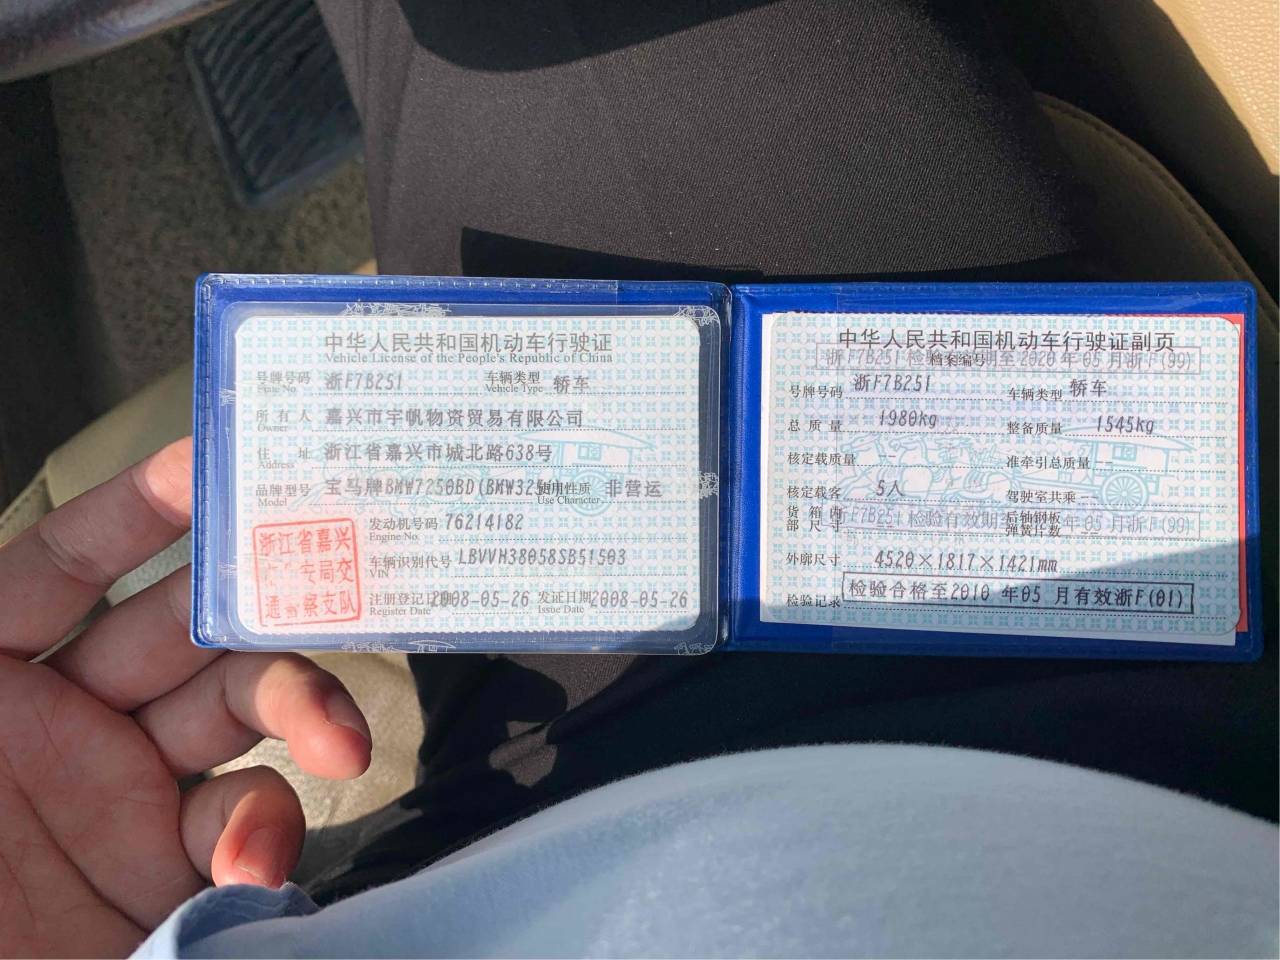 中华人民共和国机动车行驶证
Vehicle License of the People's Republic of China
号牌号码 浙F7B251 车辆类型 轿车
Plate No. Vehicle Type
所有人 嘉兴市宇帆物资贸易有限公司
Owner
住址 浙江省嘉兴市城北路638号
Address
品牌型号 宝马牌BMW7250BD(BMW325 使用性质 非营运
Model Use Character
发动机号码 76214182
Engine No.
车辆识别代号 LBVVH38058SB51503
VIN
注册登记日期 2008-05-26 发证日期 2008-05-26
Register Date Issue Date
浙江省嘉兴
安局交
通警察支队
中华人民共和国机动车行驶证副页
浙F7B251 检验有效期至2020年05月浙F(99)
档案编号
号牌号码 浙F7B251 车辆类型 轿车
总质量 1980kg 整备质量 1545kg
核定载质量 -- 准牵引总质量 --
核定载客 5人 驾驶室共乘 --
货箱内部尺寸 后轴钢板弹簧片数
F7B251 检验有效期 年05月浙F(99)
外廓尺寸 4520×1817×1421mm
检验记录 检验合格至2010年05月有效浙F(01)